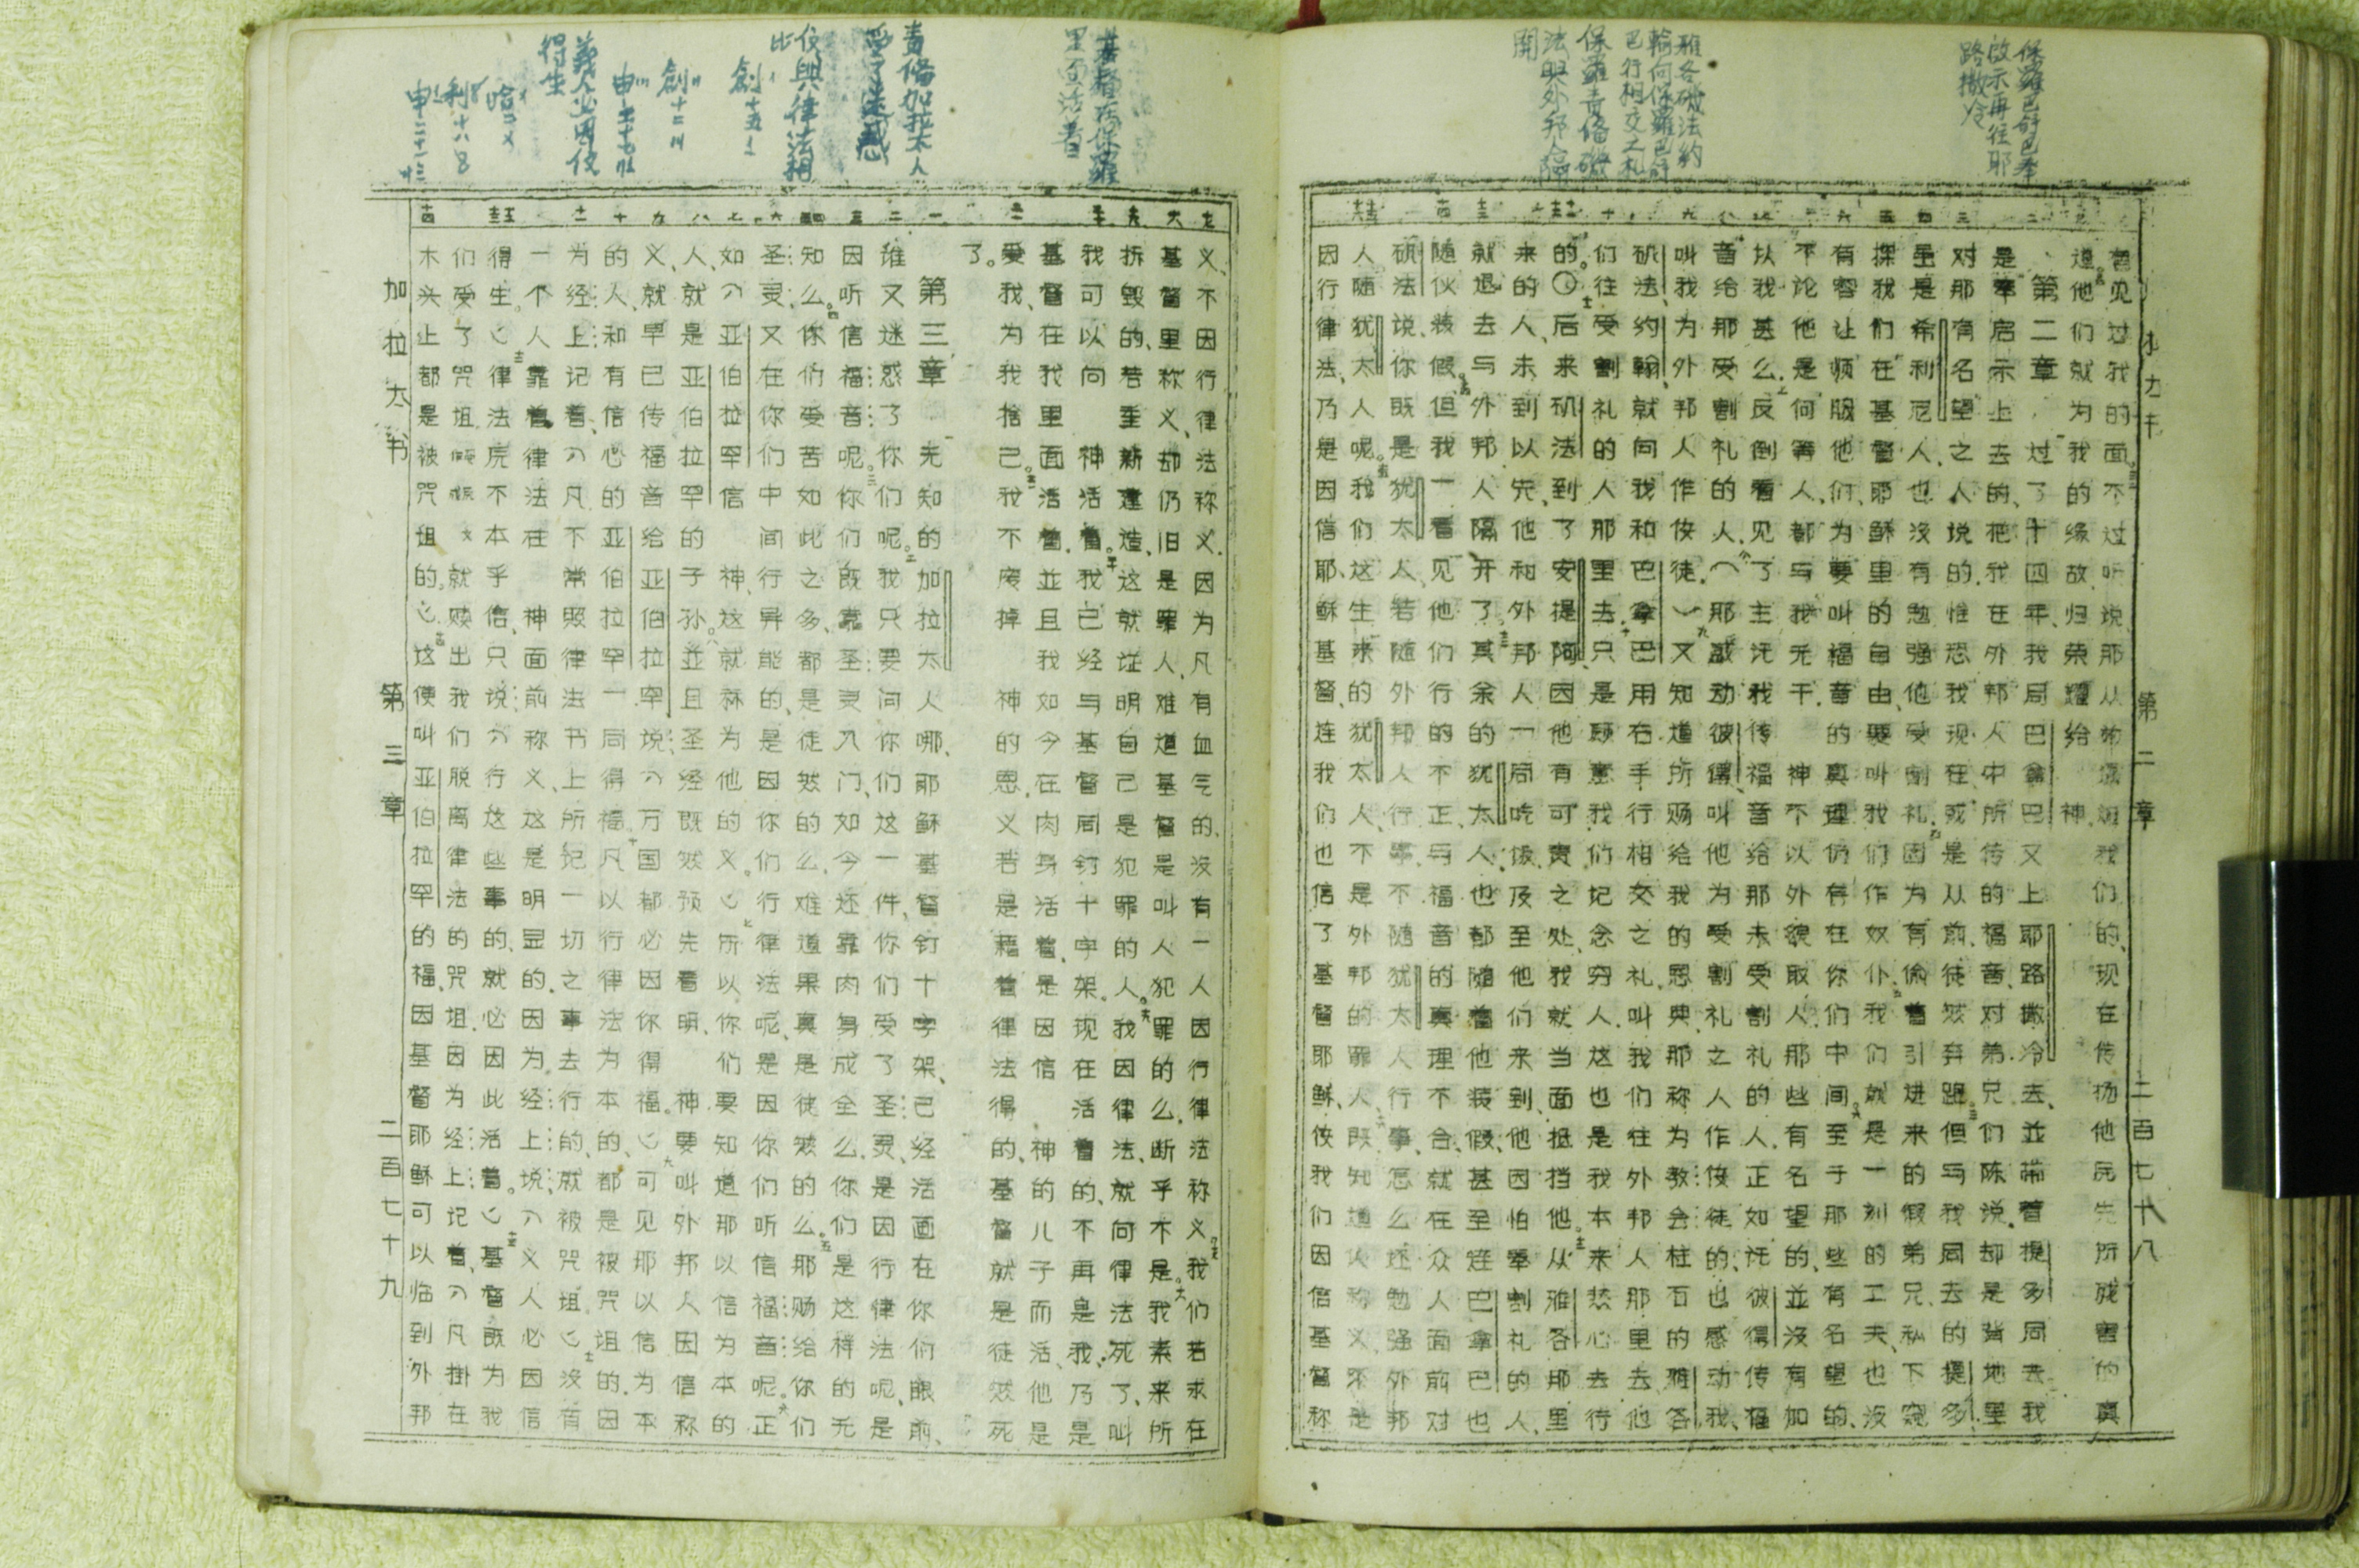 保羅已斜巴奉
啟示再往耶
路撒冷
雅各磯法約
翰向保羅巴斜
巴行相交之礼
保羅責俻磯
法與外邦人隔
開
第二章
二百七十八
曾见过我的面。不过听说、那从前逼迫我们的、现在传扬他民先所残害的真
道。他们就为我的缘故、归荣耀给 神。
第二章 过了十四年、我同巴拿巴又上耶路撒冷去、並带着提多同去。我
是奉启示上去的、把我在外邦人中所传的福音、对弟兄们陈说.却是背地里
对那有名望之人说的.惟恐我现在、或是从前、徒然奔跑。但与我同去的提多、
虽是希利尼人、也没有勉强他受割礼.因为有偷着引进来的假弟兄、私下窥
探我们在基督耶稣里的自由、要叫我们作奴仆。我们就是一刻的工夫、也没
有容让顺服他们、为要叫福音的真理仍存在你们中间。至于那些有名望的、
不论他是何等人、都与我无干. 神不以外貌取人.那些有名望的、並没有加
以我甚么.反倒看见了主托我传福音给那未受割礼的人.正如托彼得传福
音给那受割礼的人.(那感动彼得、叫他为受割礼之人作使徒的、也感动我、
叫我为外邦人作使徒.)又知道所赐给我的恩典、那称为教会柱石的雅各
矶法、约翰、就向我和巴拿巴用右手行相交之礼、叫我们往外邦人那里去、他
们往受割礼的人那里去.只是愿意我们记念穷人.这也是我本来热心去行
的。〇后来矶法到了安提阿、因他有可责之处、我就当面抵挡他。从雅各那里
来的人、未到以先、他和外邦人一同吃饭.及至他们来到、他因怕奉割礼的人、
就退去与外邦人隔开了。其余的犹太人、也都随着他装假.甚至连巴拿巴也
随伙装假。但我一看见他们行的不正、与福音的真理不合、就在众人面前对
矶法说、你既是犹太人、若随外邦人行事、不随犹太人行事、怎么还勉强外邦
人随犹太人呢。我们这生来的犹太人、不是外邦的罪人、既知道人称义、不是
因行律法、乃是因信耶稣基督、连我们也信了基督耶稣、使我们因信基督称
基督為保羅
里面活着
責俻加拉太人
受了迷惑
信與律法相
比
創十五
創十二
義人必因信
得生
義、不因行律法称义.因为凡有血气的、没有一人因行律法称义。我们若求在
基督里称义、却仍旧是罪人、难道基督是叫人犯罪的么.断乎不是。我素来所
拆毁的、若重新建造、这就证明自己是犯罪的人。我因律法、就向律法死了、叫
我可以向 神活着。我已经与基督同钉十字架.现在活着的、不再是我、乃是
基督在我里面活着.並且我如今在肉身活着、是因信 神的儿子而活、他是
爱我、为我捨己。我不废掉 神的恩.义若是藉着律法得的、基督就是徒然死
了。
第三章 无知的加拉太人哪、耶稣基督钉十字架、已经活画在你们眼前、
谁又迷惑了你们呢。我只要问你们这一件、你们受了圣灵、是因行律法呢、是
因听信福音呢。你们既靠圣灵入门、如今还靠肉身成全么.你们是这样的无
知么。你们受苦如此之多、都是徒然的么.难道果真是徒然的么。那赐给你们
圣灵、又在你们中间行异能的、是因你们行律法呢、是因你们听信福音呢。正
如(亚伯拉罕信 神、这就称为他的义.)所以你们要知道那以信为本的
人、就是亚伯拉罕的子孙。並且圣经既然预先看明、 神要叫外邦人因信称
义、就早已传福音给亚伯拉罕说(万国都必因你得福.)可见那以信为本
的人、和有信心的亚伯拉罕一同得福。凡以行律法为本的、都是被咒诅的.因
为经上记着、(凡不常照律法书上所记一切之事去行的、就被咒诅)没有
一个人靠着律法在 神面前称义、这是明显的.因为经上说、(义人必因信
得生。)律法原不本乎信、只说(行这些事的、就必因此活着。)基督既为我
们受了咒诅 就赎出我们脱离律法的咒诅.因为经上记着、(凡掛在
木头上都是被咒诅的。)这便叫亚伯拉罕的福、因基督耶稣可以临到外邦
加拉太书
第三章
二百七十九